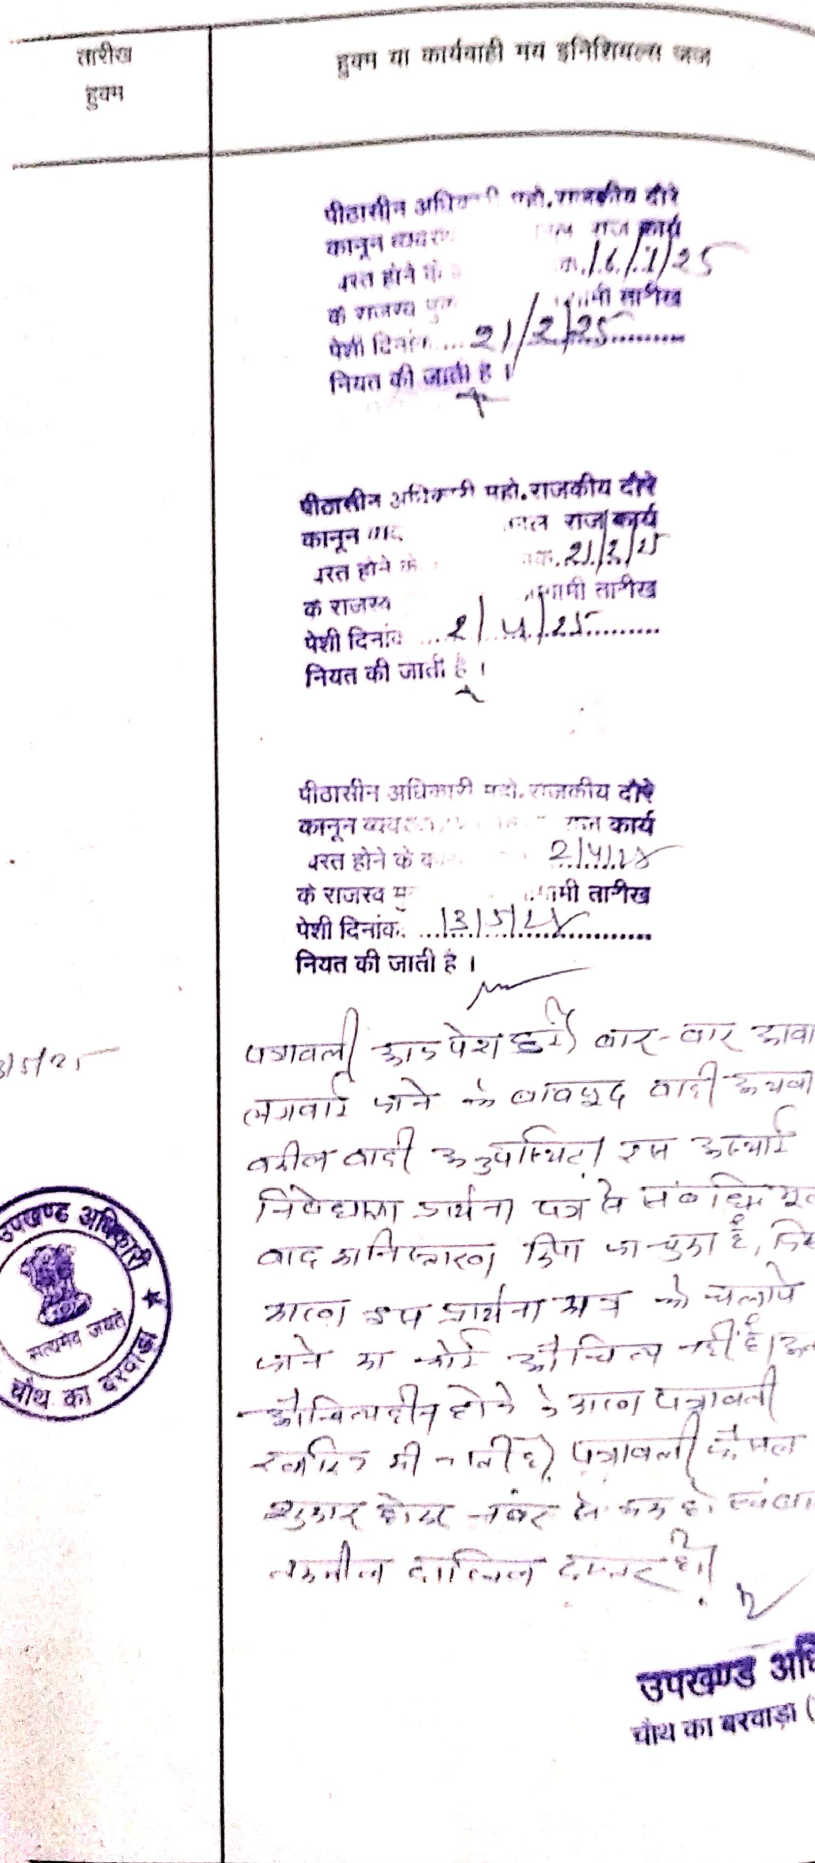 तारीख
हुक्म
हुक्म या कार्यवाही मय इनिशियल्स जज
पीठासीन अधिकारी महो.राजकीय दौरे
कानून राज कार्य
होने के 16/1/25
के राजस्व तारीख
पेशी दिनांक 21/2/25
नियत की जाती है ।
पीठासीन अधिकारी महो.राजकीय दौरे
कानून राज कार्य
होने के 21/2/25
के राजस्व तारीख
पेशी दिनांक 2/4/25
नियत की जाती है ।
पीठासीन अधिकारी महो.राजकीय दौरे
कानून राज कार्य
होने के
के राजस्व तारीख
पेशी दिनांक. 13/5/25
नियत की जाती है ।
5/25
पत्रावली आज पेश हुई। बार-बार आवा
लगवाई जाने के बावजूद वादी अथवा
वकील वादी अनुपस्थित। इस अस्थाई
निषेधाज्ञा प्रार्थना पत्र से संबंधित मूल
वाद का निस्तारण किया जा चुका है,
कारण इस प्रार्थना पत्र को चलाये
जाने का कोई औचित्य नहीं है।
औचित्यहीन होने के कारण पत्रावली
खारिज की जाती है। पत्रावली फैसल
शुमार होकर नंबर से कम हो।
तकमील दाखिल दफ्तर हो।
उपखण्ड अधिकारी
सत्यमेव जयते
चौथ का बरवाड़ा
उपखण्ड अधि
चौथ का बरवाड़ा (